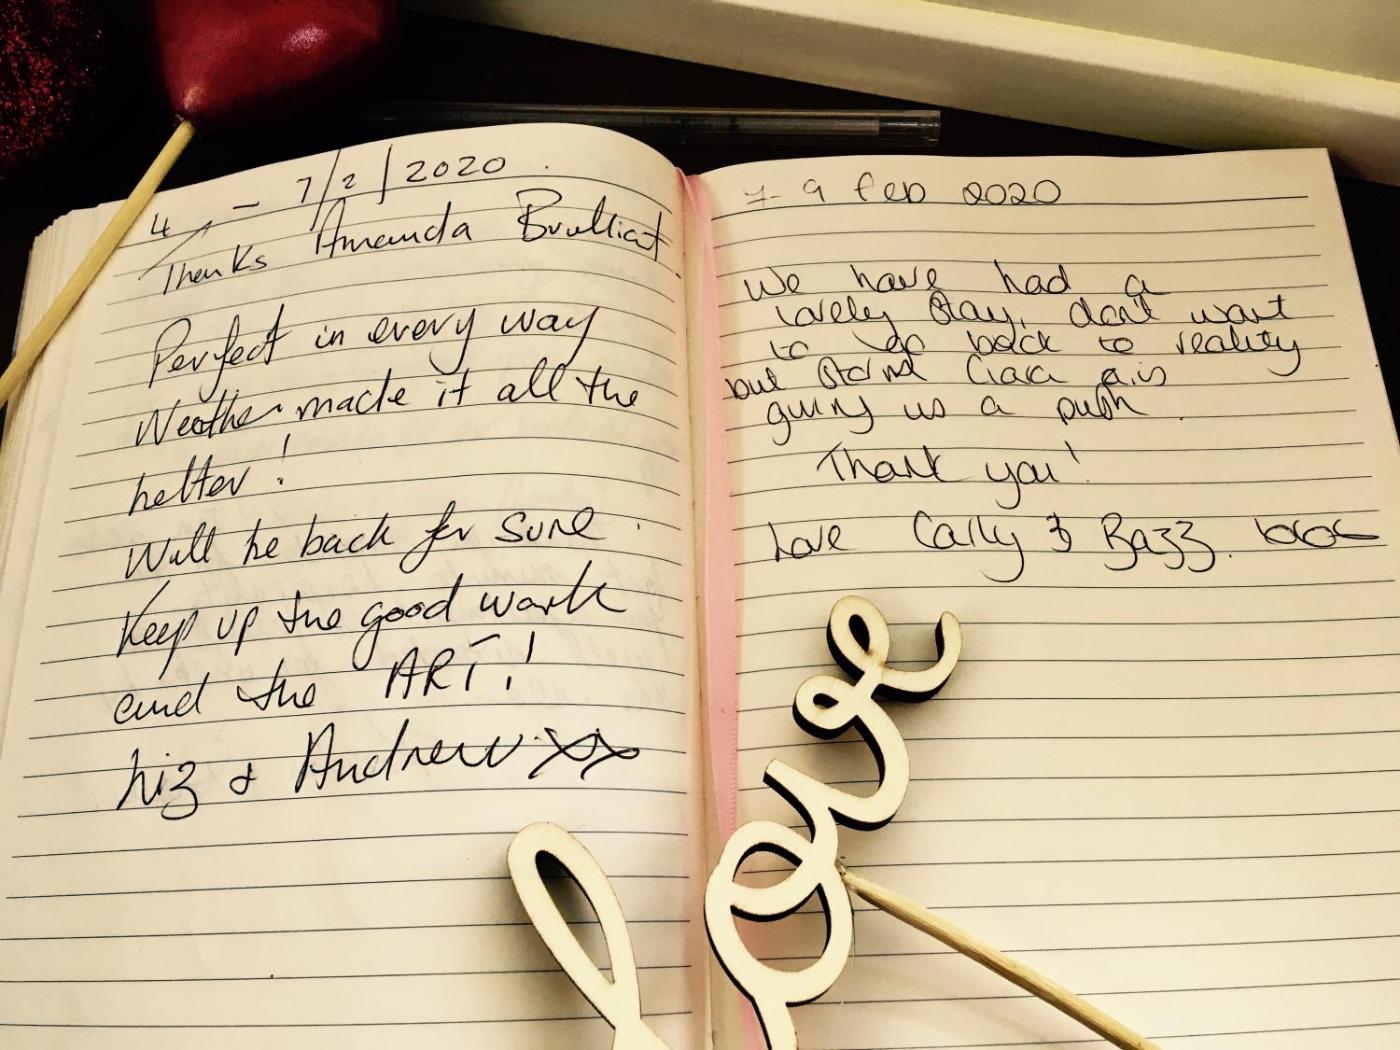 4 - 7/2/2020.
Thanks Amanda Brulliant.
Perfect in every way
Weather made it all the
better!
Will be back for sure.
Keep up the good work
and the ART!
Liz & Andrew xx
7-9 Feb 2020
We have had a
lovely stay, dont want
to go back to reality
but Storm Ciara is
giving us a push.
Thank you!
Love Carly & Bazz.
love